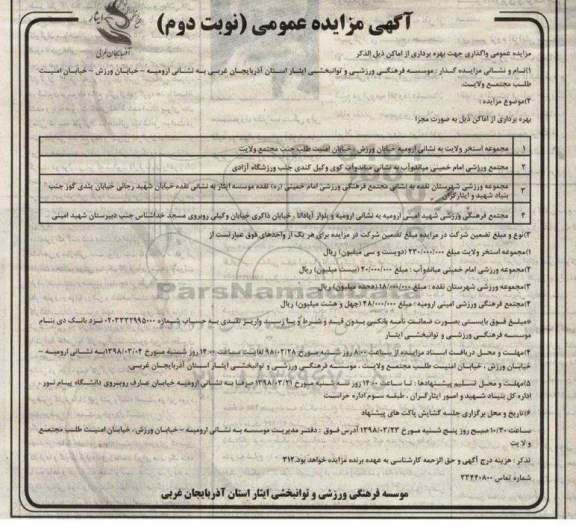 آگهی مزایده عمومی (نوبت دوم)
ایثار
آذربایجان غربی
مزایده عمومی واگذاری جهت بهره برداری از اماکن ذیل الذکر
۱)نام و نشانی مزایده گذار : موسسه فرهنگی ورزشی و توانبخشی ایثار استان آذربایجان غربی به نشانی ارومیه – خیابان ورزش – خیابان امنیت
طلب مجتمع ولایت.
۲)موضوع مزایده :
بهره برداری از اماکن ذیل به صورت مجزا
۱ مجموعه استخر ولایت به نشانی ارومیه خیابان ورزش ، خیابان امنیت طلب جنب مجتمع ولایت
۲ مجتمع ورزشی امام خمینی میاندوآب به نشانی میاندوآب کوی وکیل کندی جنب ورزشگاه آزادی
۳ مجموعه ورزشی شهرستان نقده به نشانی مجتمع فرهنگی ورزشی امام خمینی (ره) نقده موسسه ایثار به نشانی نقده خیابان شهید رجائی خیابان بندی گوز جنب
بنیاد شهید و ایثارگران
۴ مجتمع فرهنگی ورزشی شهید امینی ارومیه به نشانی ارومیه و بلوار آپادانا ، خیابان ذاکری خیابان وکیلی روبروی مسجد خداشناس جنب دبیرستان شهید امینی
۳)نوع و مبلغ تضمین شرکت در مزایده مبلغ تضمین شرکت در مزایده برای هر یک از واحدهای فوق عبارتست از
۱)مجموعه استخر ولایت مبلغ ۲۳۰/۰۰۰/۰۰۰ (دویست و سی میلیون) ریال
۲)مجموعه ورزشی امام خمینی میاندوآب : مبلغ ۲۰/۰۰۰/۰۰۰ (بیست میلیون) ریال
۳)مجموعه ورزشی شهرستان نقده : مبلغ ۱۸/۰۰۰/۰۰۰ (هجده میلیون) ریال
ParsNamadData
۴)مجتمع فرهنگی ورزشی امینی ارومیه : مبلغ ۴۸/۰۰۰/۰۰۰ (چهل و هشت میلیون) ریال
*مبلغ فوق بایستی بصورت ضمانت نامه بانکی بدون قید و شرط و یا رسید واریز نقدی به حساب شماره ۰۲۰۳۳۳۲۹۹۵۰۰۰ نزد بانک دی بنام
موسسه فرهنگی ورزشی و توانبخشی ایثار
۴)مهلت و محل دریافت اسناد مزایده از ساعت ۸/۰۰ روز شنبه مورخ ۹۸/۰۲/۲۸ لغایت ساعت ۱۴:۰۰ روز شنبه مورخ ۱۳۹۸/۰۳/۰۴ به نشانی ارومیه –
خیابان ورزش ، خیابان امنیت طلب مجتمع ولایت ، موسسه فرهنگی ورزشی و توانبخشی ایثار استان آذربایجان غربی.
۵)مهلت و محل تسلیم پیشنهادها : تا ساعت ۱۴:۰۰ روز سه شنبه مورخ ۱۳۹۸/۰۳/۲۱ صرفا به نشانی ارومیه خیابان عارف روبروی دانشگاه پیام نور ،
اداره کل بنیاد شهید و امور ایثارگران ، طبقه سوم اداره حراست
۶)تاریخ و محل برگزاری جلسه گشایش پاکت های پیشنهاد
ساعت ۱۰/۳۰ صبح روز پنج شنبه مورخ ۱۳۹۸/۰۳/۲۳ آدرس فوق : دفتر مدیریت موسسه به نشانی ارومیه – خیابان ورزش ، خیابان امنیت طلب مجتمع
ولایت
تذکر : هزینه درج آگهی و حق الزحمه کارشناسی به عهده برنده مزایده خواهد بود. ۳۱۲
شماره تماس ۳۳۴۴۰۸۰۰
موسسه فرهنگی ورزشی و توانبخشی ایثار استان آذربایجان غربی